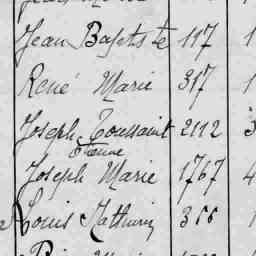 Jean Bapts te 117 1
René Marie 317 1
Joseph Toussaint 2112 3
Etienne
Joseph Marie 1767 4
Louis Mathurin 366 1